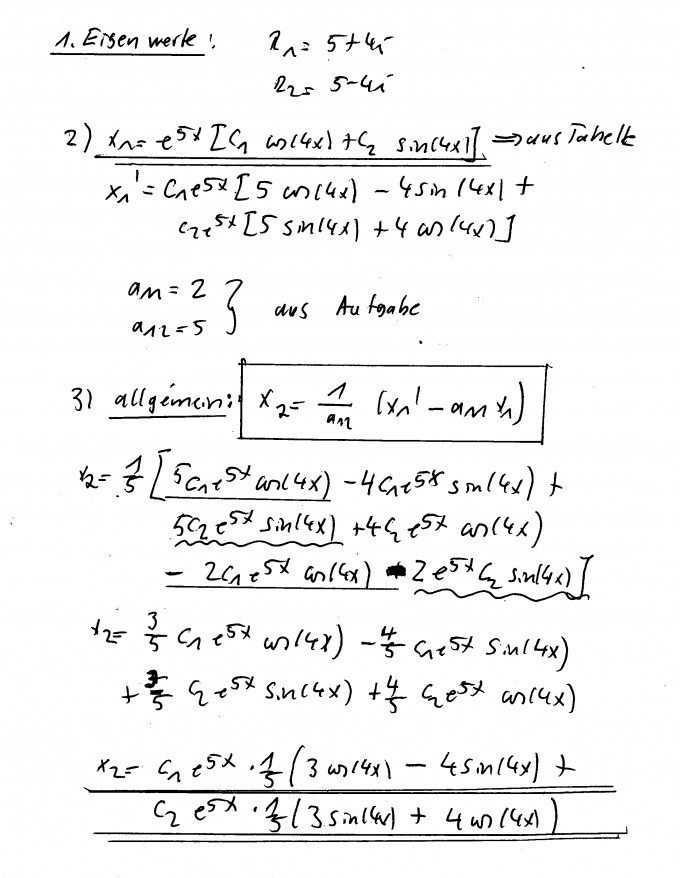 1. Eigenwerte: λ₁ = 5+4i
λ₂ = 5-4i
2) x₁ = e^5x [C₁ cos(4x) + C₂ sin(4x)] ⇒ aus Tabelle
x₁' = C₁e^5x [5 cos(4x) - 4 sin(4x) +
C₂e^5x [5 sin(4x) + 4 cos(4x)]
a₁₁ = 2
a₁₂ = 5 } aus Aufgabe
3) allgemein: x₂ = 1/a₁₂ (x₁' - a₁₁ x₁)
x₂ = 1/5 [5C₁e^5x cos(4x) - 4C₁e^5x sin(4x) +
5C₂e^5x sin(4x) + 4C₂e^5x cos(4x)
- 2C₁e^5x cos(4x) - 2e^5x C₂ sin(4x)]
x₂ = 3/5 C₁e^5x cos(4x) - 4/5 C₁e^5x sin(4x)
+ 3/5 C₂e^5x sin(4x) + 4/5 C₂e^5x cos(4x)
x₂ = C₁e^5x · 1/5 (3 cos(4x) - 4 sin(4x) +
C₂e^5x · 1/5 (3 sin(4x) + 4 cos(4x))